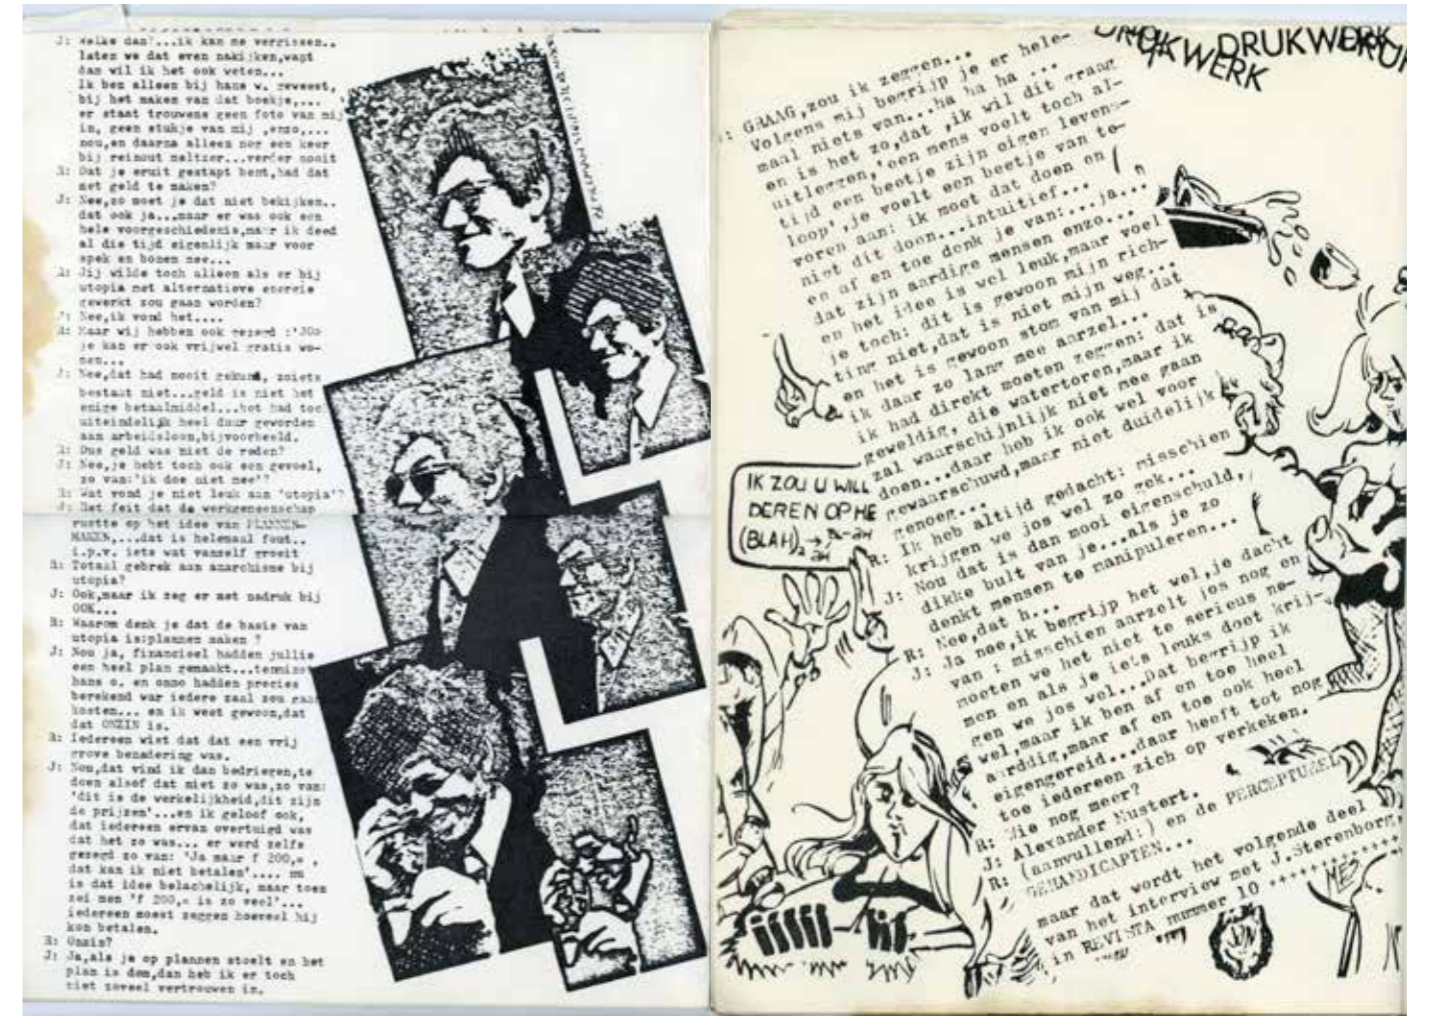 J: Welke dan?...ik kan me vergissen..
laten we dat even nakijken,want
dan wil ik het ook weten...
Ik ben alleen bij hans w. geweest,
bij het maken van dat boekje,...
er staat trouwens geen foto van mij
in, geen stukje van mij ,enzo,...
nou,en daarna alleen nog een keer
bij reinout meltzer...verder nooit
R: Dat je eruit gestapt bent,had dat
met geld te maken?
J: Nee,zo moet je dat niet bekijken..
dat ook ja...maar er was ook een
hele voorgeschiedenis,maar ik deed
al die tijd eigenlijk maar voor
spek en bonen mee...
R: Jij wilde toch alleen als er bij
utopia met alternatieve energie
gewerkt zou gaan worden?
J: Nee,ik vond het....
R: Maar wij hebben ook gezegd :'Jos
je kan er ook vrijwel gratis wo-
nen...
J: Nee,dat had nooit gekund, zoiets
bestaat niet...geld is niet het
enige betaalmiddel...het had toch
uiteindelijk heel duur geworden
aan arbeidsloon,bijvoorbeeld.
R: Dus geld was niet de reden?
J: Nee,je hebt toch ook een gevoel,
zo van:'ik doe niet mee'?
R: Wat vond je niet leuk aan 'utopia'?
J: Het feit dat de werkgemeenschap
rustte op het idee van PLANNEN-
MAKEN,...dat is helemaal fout..
i.p.v. iets wat vanzelf groeit
R: Totaal gebrek aan anarchisme bij
utopia?
J: Ook,maar ik zeg er met nadruk bij
OOK...
R: Waarom denk je dat de basis van
utopia is:plannen maken ?
J: Nou ja, financieel hadden jullie
een heel plan gemaakt...tenminste
hans o. en onno hadden precies
berekend war iedere zaal zou gaan
kosten... en ik weet gewoon,dat
dat ONZIN is.
R: Iedereen wist dat dat een vrij
grove benadering was.
J: Nou,dat vind ik dan bedriegen,te
doen alsof dat niet zo was,zo van:
'dit is de werkelijkheid,dit zijn
de prijzen'...en ik geloof ook,
dat iedereen ervan overtuigd was
dat het zo was... er werd zelfs
gezegd zo van: 'Ja maar f 200,= ,
dat kan ik niet betalen'.... nu
is dat idee belachelijk, maar toen
zei men 'f 200,= is zo veel'...
iedereen moest zeggen hoeveel hij
kon betalen.
R: Onzin?
J: Ja,als je op plannen stoelt en het
plan is dom,dan heb ik er toch
niet zoveel vertrouwen in.
DRUKWERK
DRUKWERK
: GRAAG,zou ik zeggen...
Volgens mij begrijp je er hele-
maal niets van...ha ha ha ...
en is het zo,dat ,ik wil dit graag
uitleggen,'een mens voelt toch al-
tijd een beetje zijn eigen levens-
loop',je voelt een beetje van te-
voren aan: ik moet dat doen en
niet dit doen...intuitief...
en af en toe denk je van:...ja...
dat zijn aardige mensen enzo...
en het idee is wel leuk,maar voel
je toch: dit is gewoon mijn rich-
ting niet,dat is niet mijn weg...
en het is gewoon stom van mij dat
ik daar zo lang mee aarzel...
ik had direkt moeten zeggen: dat is
geweldig, die watertoren,maar ik
zal waarschijnlijk niet mee gaan
doen...daar heb ik ook wel voor
gewaarschuwd,maar niet duidelijk
genoeg...
R: Ik heb altijd gedacht: misschien
krijgen we jos wel zo gek...
J: Nou dat is dan mooi eigenschuld,
dikke bult van je...als je zo
denkt mensen te manipuleren...
R: Nee,dat h...
J: Ja nee,ik begrijp het wel,je dacht
van : misschien aarzelt jos nog en
moeten we het niet te serieus ne-
men en als je iets leuks doet krij-
gen we jos wel...Dat begrijp ik
wel,maar ik ben af en toe heel
aarddig,maar af en toe ook heel
eigengereid...daar heeft tot nog
toe iedereen zich op verkeken.
R: Wie nog meer?
J: Alexander Mustert.
R: (aanvullend:) en de PERCEPTUEEL
GEHANDICAPTEN...
maar dat wordt het volgende deel
van het interview met J.Sterenborg,
in REVISTA nummer 10
IK ZOU U WILL
DEREN OP HE
(BLAH)₂ →